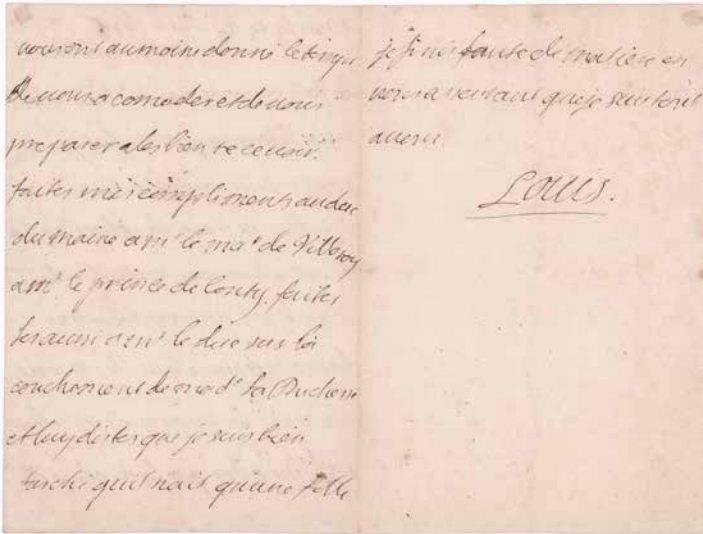 vous ont au moins donné le temps
de vous acomoder et de vous
preparer a les bien recevoir.
faites mes compliments au duc
du maine a mr le mal de Villeroy
a mr le prince de Conty. faites
les aussi a mr le duc sur la
couchement de made la Duchesse
et luy dites que je suis bien
fasché quil nait quune fille
je finis faute de matiere en
vous assurant que je suis tout
a vous.
Louis.